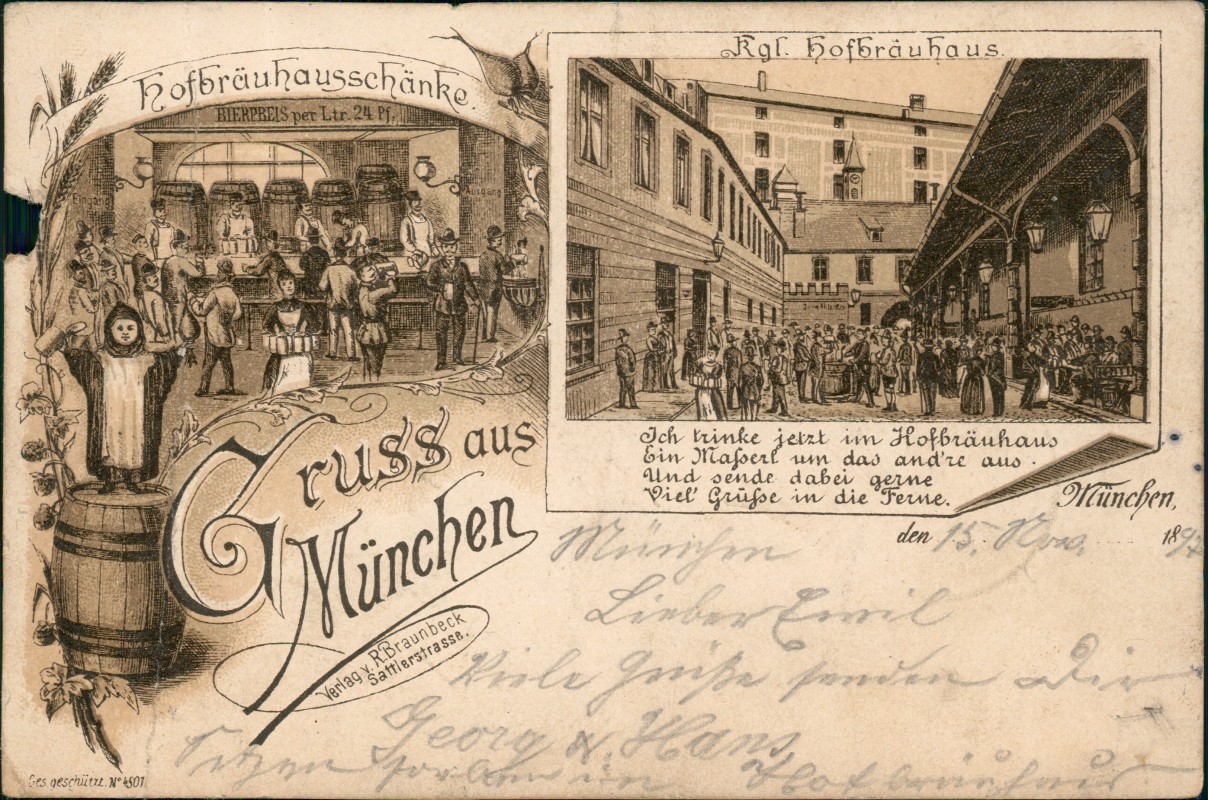 Hofbräuhausschänke.
BIERPREIS per Ltr. 24 Pf.
Eingang
Ausgang
Gruss aus
München
Verlag v. R. Braunbeck
Sattlerstrasse.
Ges. geschützt. No 4501
Kgl. Hofbräuhaus.
Ich trinke jetzt im Hofbräuhaus
Ein Maßerl um das and're aus.
Und sende dabei gerne
Viel' Grüße in die Ferne.
München,
den 15. Nov. 1897
München
Lieber Emil
Viele Grüße senden Dir
Georg & Hans
Sitzen im Hofbräuhaus